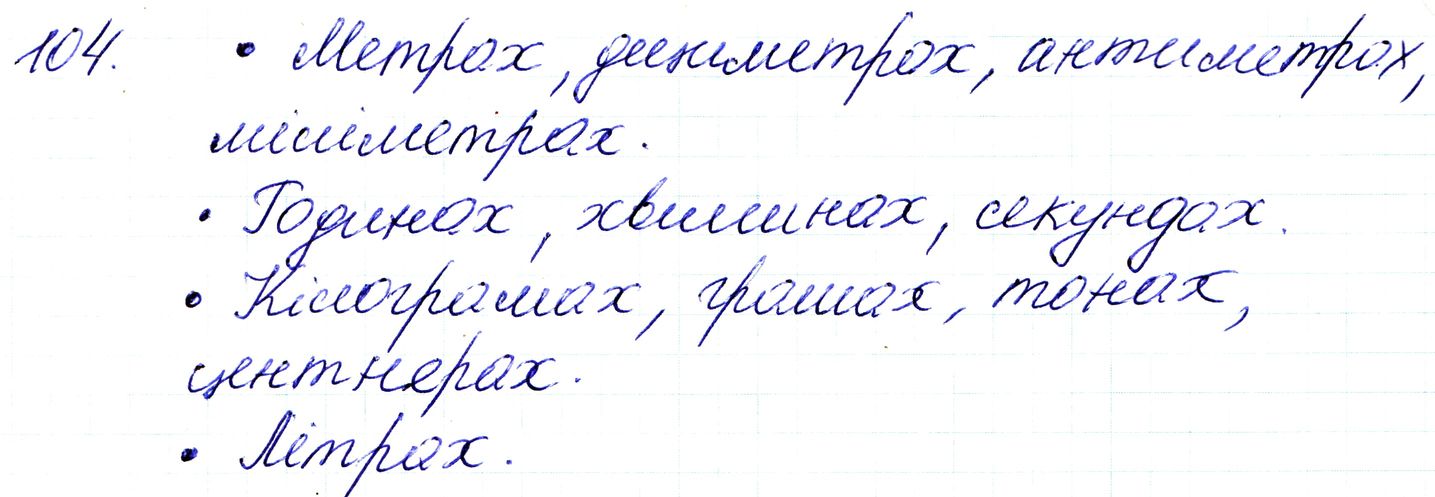 104. • Метрах, дециметрах, антиметрах,
міліметрах.
• Годинах, хвилинах, секундах.
• Кілограмах, грамах, тонах,
центнерах.
• Літрах.